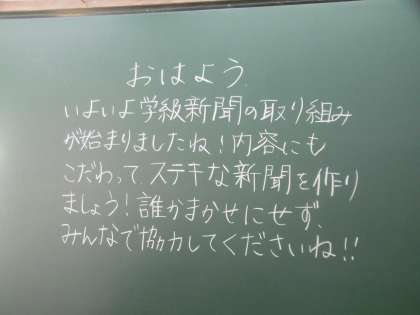 おはよう.
いよいよ学級新聞の取り組み
が始まりましたね！内容にも
こだわって、ステキな新聞を作り
ましょう！誰かまかせにせず、
みんなで協力してくださいね!!